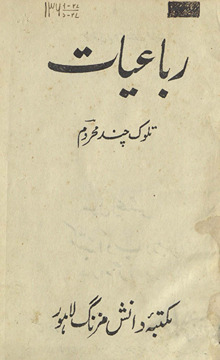 رباعیات
تلوک چند محروم
مکتبۂ دانش مزنگ لاہور